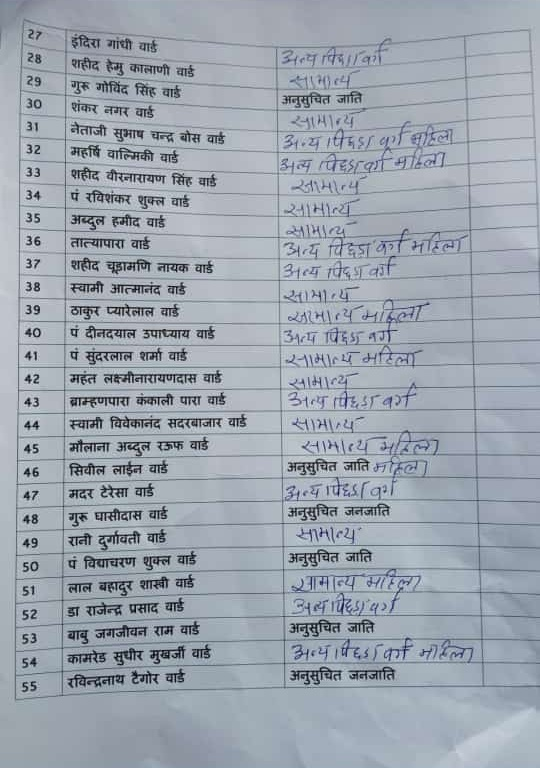 27 इंदिरा गांधी वार्ड अन्य पिछडा वर्ग
28 शहीद हेमु कालाणी वार्ड सामान्य
29 गुरू गोविंद सिंह वार्ड अनुसुचित जाति
30 शंकर नगर वार्ड सामान्य
31 नेताजी सुभाष चन्द्र बोस वार्ड अन्य पिछडा वर्ग महिला
32 महर्षि वाल्मिकी वार्ड अन्य पिछडा वर्ग महिला
33 शहीद वीरनारायण सिंह वार्ड सामान्य
34 पं रविशंकर शुक्ल वार्ड सामान्य
35 अब्दुल हमीद वार्ड सामान्य
36 तात्यापारा वार्ड अन्य पिछडा वर्ग महिला
37 शहीद चूड़ामणि नायक वार्ड अन्य पिछडा वर्ग
38 स्वामी आत्मानंद वार्ड सामान्य
39 ठाकुर प्यारेलाल वार्ड सामान्य महिला
40 पं दीनदयाल उपाध्याय वार्ड अन्य पिछडा वर्ग
41 पं सुंदरलाल शर्मा वार्ड सामान्य महिला
42 महंत लक्ष्मीनारायणदास वार्ड सामान्य
43 ब्राम्हणपारा कंकाली पारा वार्ड अन्य पिछडा वर्ग
44 स्वामी विवेकानंद सदरबाजार वार्ड सामान्य
45 मौलाना अब्दुल रऊफ वार्ड सामान्य महिला
46 सिवील लाईन वार्ड अनुसुचित जाति महिला
47 मदर टेरेसा वार्ड अन्य पिछडा वर्ग
48 गुरू घासीदास वार्ड अनुसुचित जनजाति
49 रानी दुर्गावती वार्ड सामान्य
50 पं विद्याचरण शुक्ल वार्ड अनुसुचित जाति
51 लाल बहादुर शास्त्री वार्ड सामान्य महिला
52 डा राजेन्द्र प्रसाद वार्ड अन्य पिछडा वर्ग
53 बाबु जगजीवन राम वार्ड अनुसुचित जाति
54 कामरेड सुधीर मुखर्जी वार्ड अन्य पिछडा वर्ग महिला
55 रविन्द्रनाथ टैगोर वार्ड अनुसुचित जनजाति